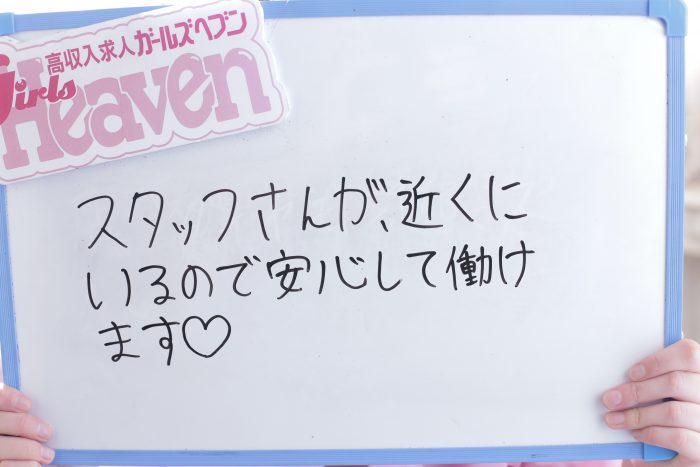 高収入求人ガールズヘブン
Girls
Heaven
スタッフさんが、近くに
いるので安心して働け
ます♡